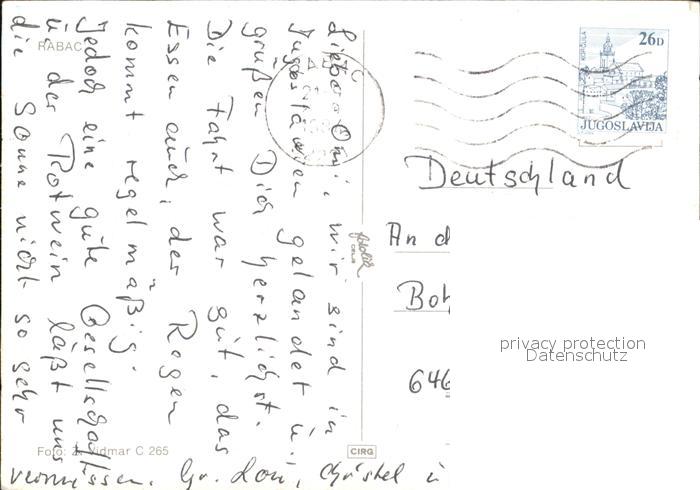 Liebe Omi, wir sind in
Jugoslawien gelandet u.
grüßen Dich herzlichst.
Die Fahrt war gut, das
Essen auch, der Regen
kommt regelmäßig.
Jedoch eine gute Gesellschaft
u. der Rotwein läßt uns
die Sonne nicht so sehr
vermissen. Gr. Lou, Christel u
RABAC
Foto: Z. Vidmar C 265
CIRG
KORČULA
26D
JUGOSLAVIJA
Deutschland
An d
Boh
646
privacy protection
Datenschutz